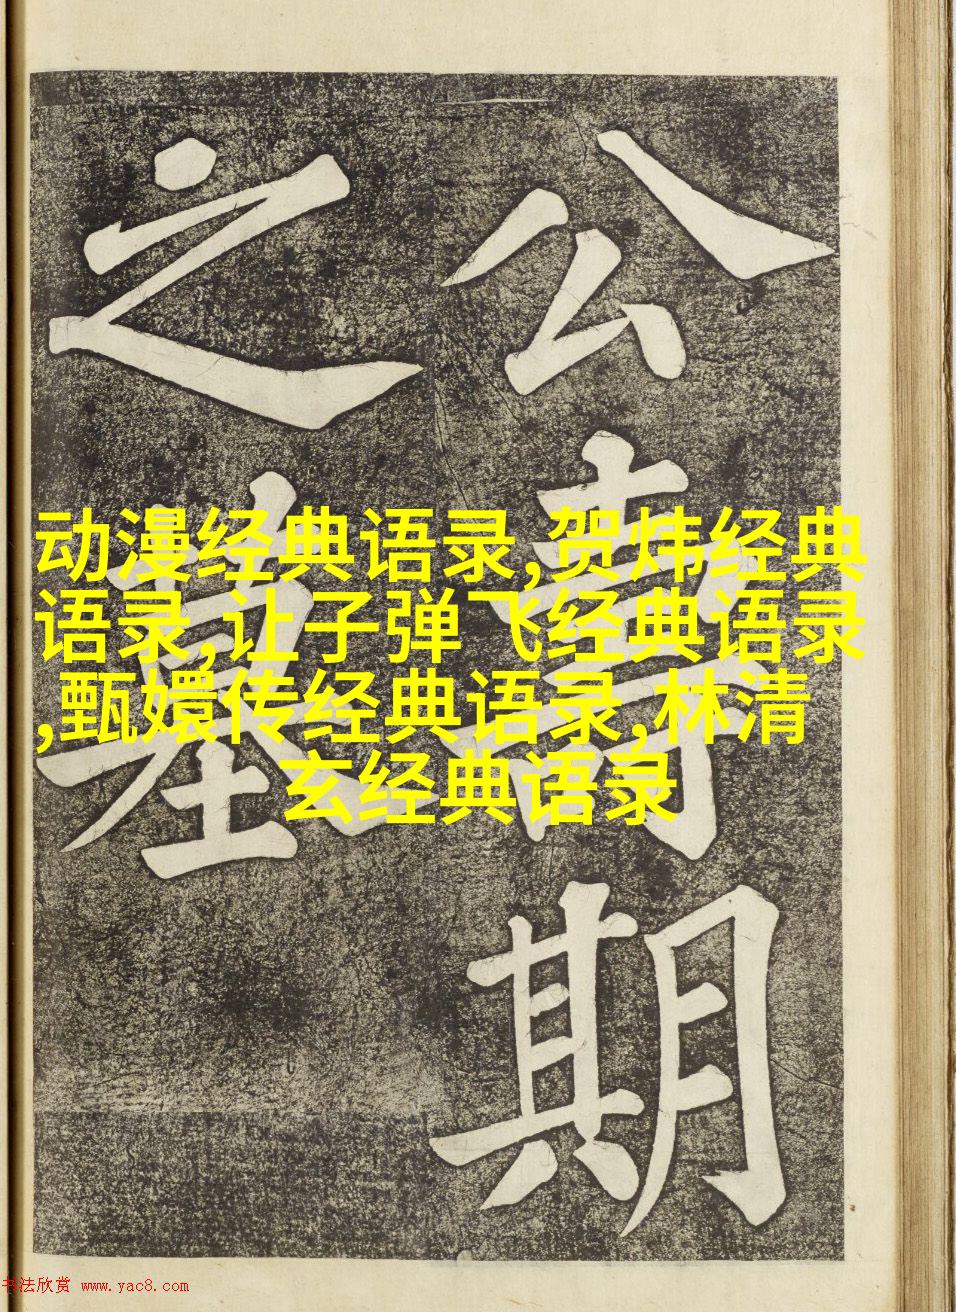 公壽期
之墓
动漫经典语录,贺炜经典
语录,让子弹飞经典语录
,甄嬛传经典语录,林清
玄经典语录
书法欣赏 www.yac8.com